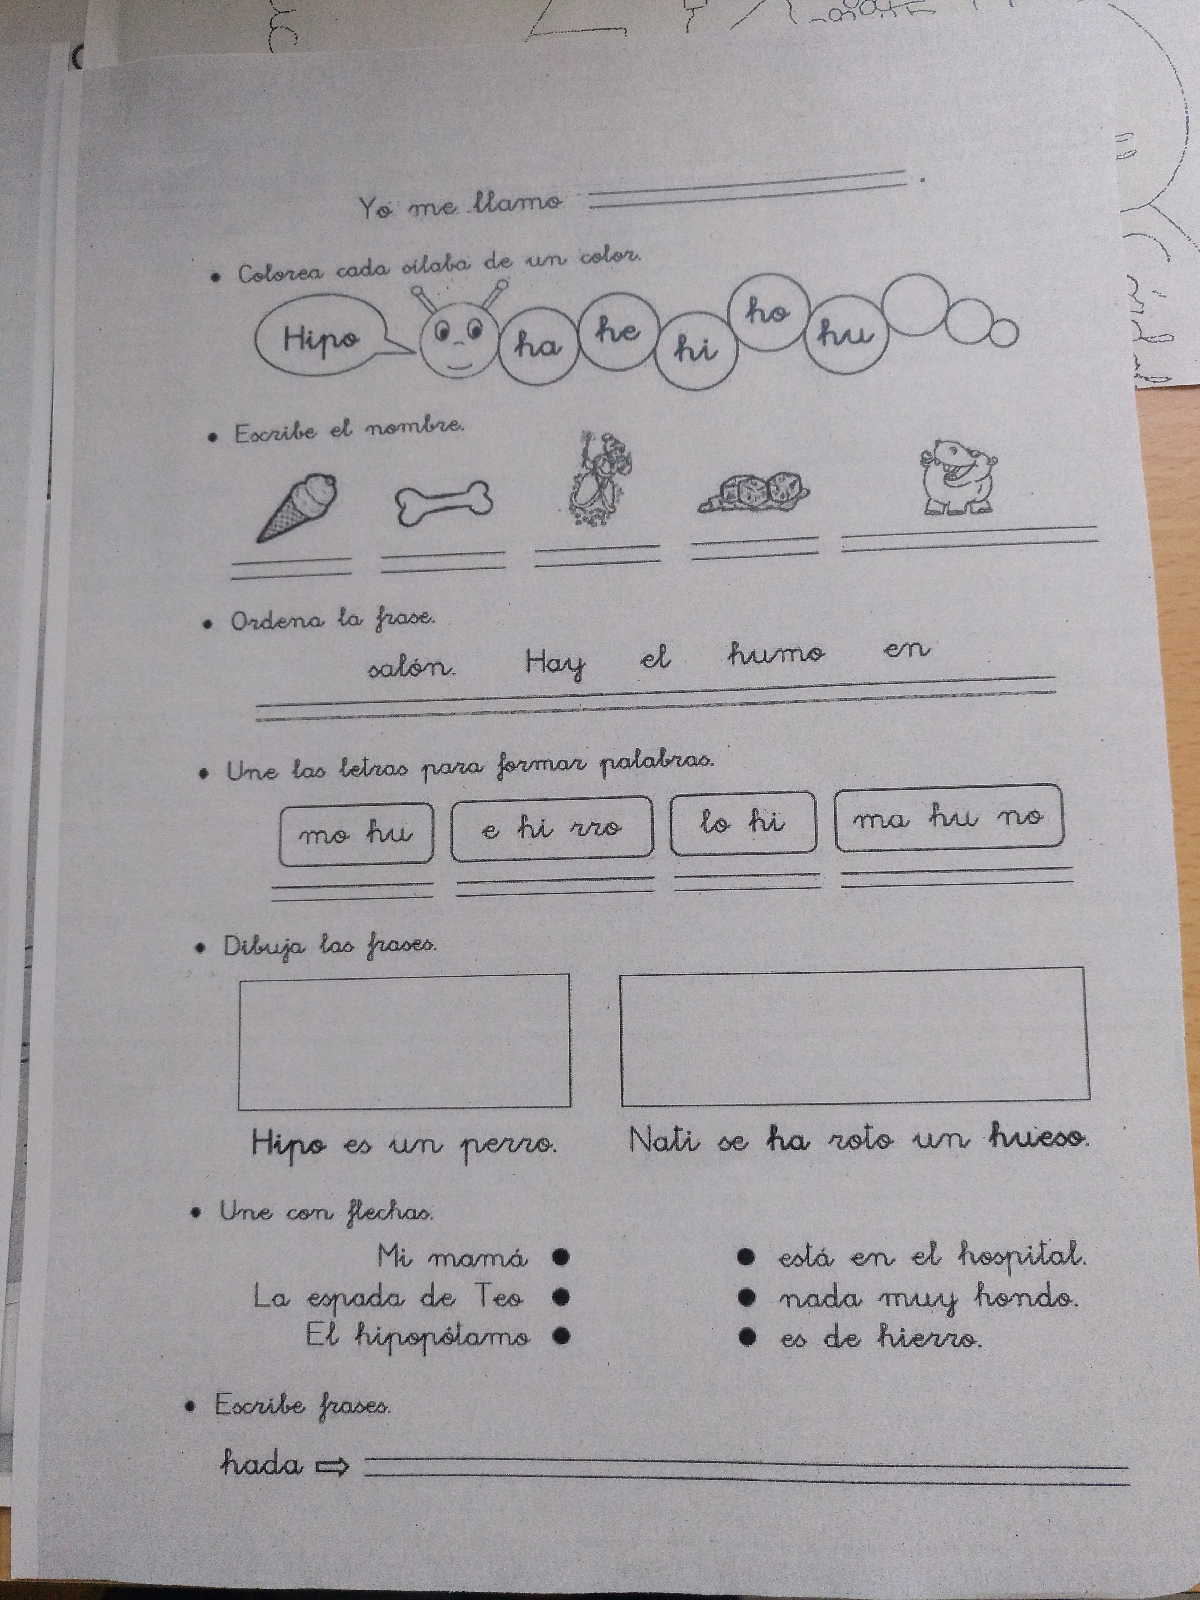 Yo me llamo .
• Colorea cada sílaba de un color.
Hipo ha he hi ho hu
• Escribe el nombre.
• Ordena la frase.
salón. Hay el humo en
• Une las letras para formar palabras.
mo hu e hi rro lo hi ma hu no
• Dibuja las frases.
Hipo es un perro. Nati se ha roto un hueso.
• Une con flechas.
Mi mamá ● ● está en el hospital.
La espada de Teo ● ● nada muy hondo.
El hipopótamo ● ● es de hierro.
• Escribe frases.
hada ⇨